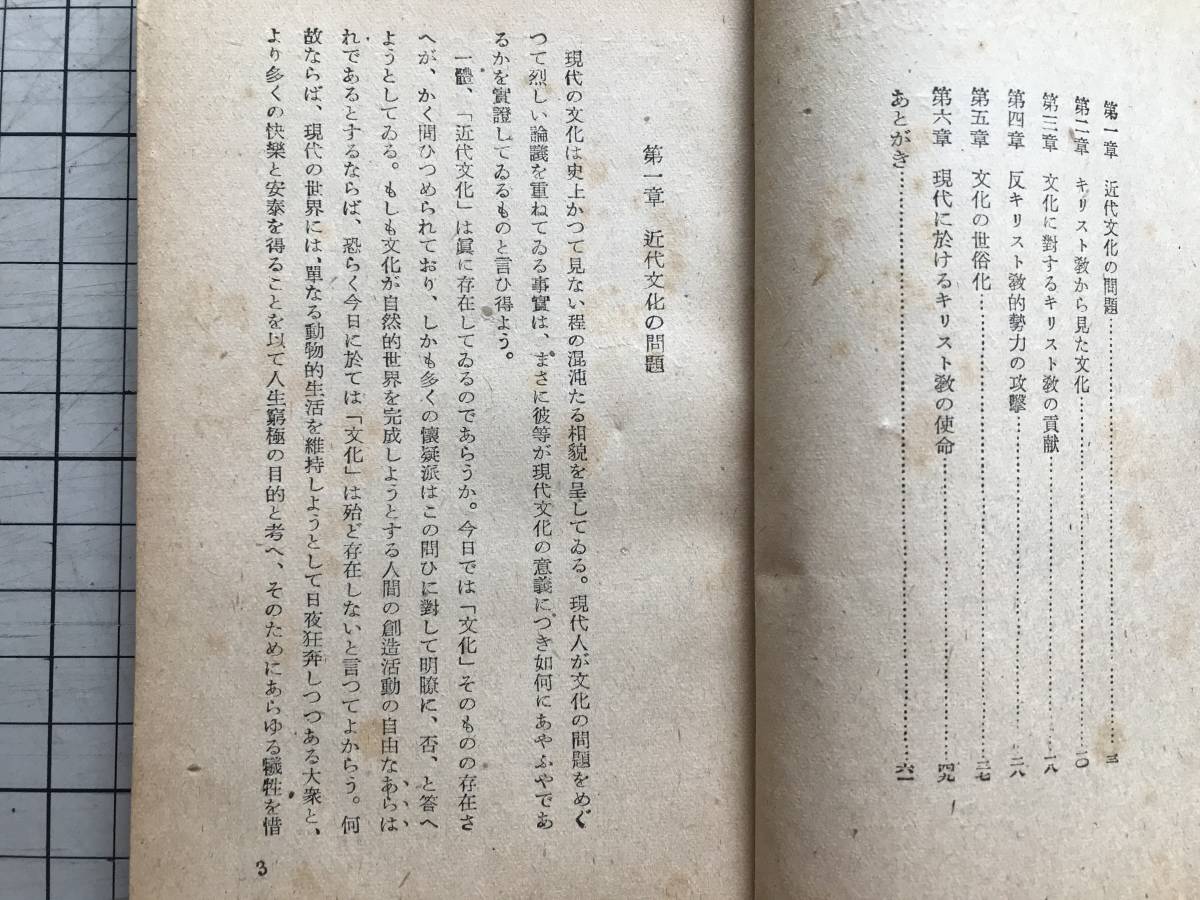 第一章　近代文化の問題……………………三
第二章　キリスト敎から見た文化……………………一〇
第三章　文化に對するキリスト敎の貢献……………………一八
第四章　反キリスト敎的勢力の攻擊……………………二八
第五章　文化の世俗化……………………三七
第六章　現代に於けるキリスト敎の使命……………………四九
あとがき……………………六一
第一章　近代文化の問題
現代の文化は史上かつて見ない程の混沌たる相貌を呈してゐる。現代人が文化の問題をめぐ
つて烈しい論議を重ねてゐる事實は、まさに彼等が現代文化の意義につき如何にあやふやであ
るかを實證してゐるものと言ひ得よう。
一體、「近代文化」は眞に存在してゐるのであらうか。今日では「文化」そのものの存在さ
へが、かく問ひつめられており、しかも多くの懷疑派はこの問ひに對して明瞭に、否、と答へ
ようとしてゐる。もしも文化が自然的世界を完成しようとする人間の創造活動の自由なあらは
れであるとするならば、恐らく今日に於ては「文化」は殆ど存在しないと言つてよからう。何
故ならば、現代の世界には、單なる動物的生活を維持しようとして日夜狂奔しつつある大衆と、
より多くの快樂と安泰を得ることを以て人生窮極の目的と考へ、そのためにあらゆる犧牲を惜
3